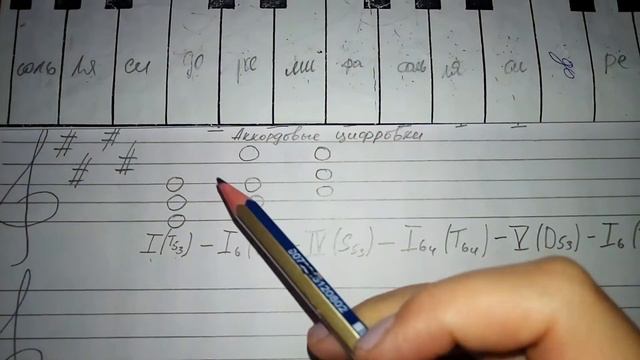 соль ля си до ре ми фа соль ля си до ре
Аккордовые цифровки
I (T53) – I6 – IV (S53) – I64 (T64) – V (D53) – I6 (